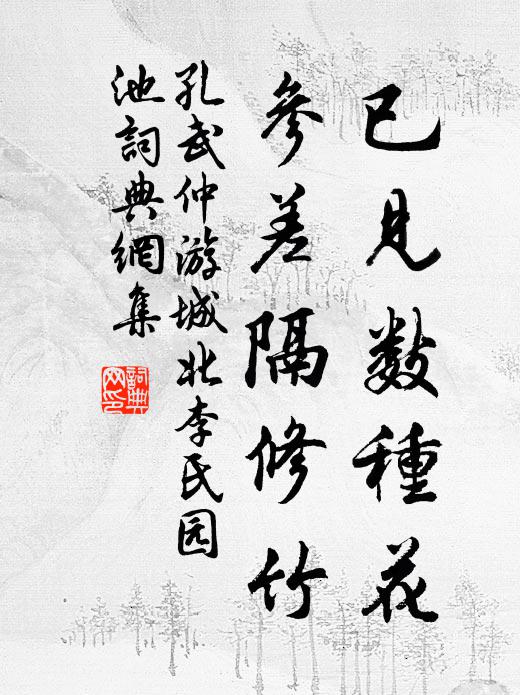 已见数種花
參差隔修竹
孔武仲游城北李氏园
池詞典網集
詞典網印